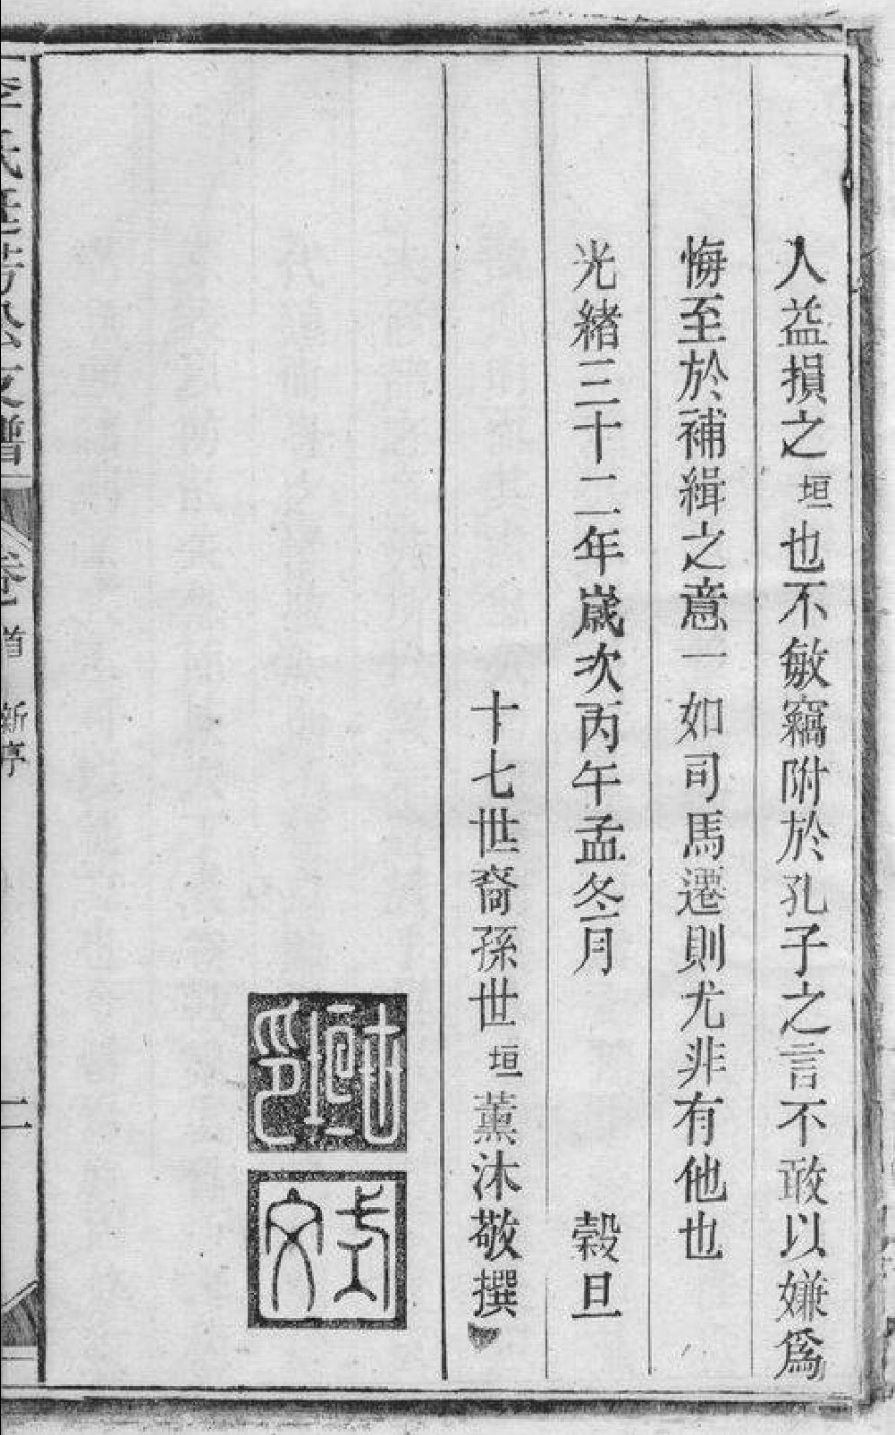 人益損之垣也不敏竊附於孔子之言不敢以嫌爲
悔至於補緝之意一如司馬遷則尤非有他也
光緒三十二年歲次丙午孟冬月 穀旦
十七世裔孫世垣薰沐敬撰
世垣印
李氏廷芳公支譜 卷首 新序 二